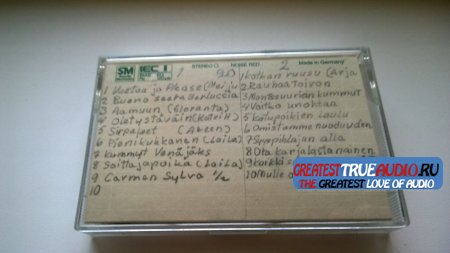 SM
IEC I
1
STEREO
90
NOISE RED
2
Made in Germany
1 Vuotaa ja Akase (Meiju
2 Buena seera Berluccia
3 Aamuun (Eloranta)
4 Oletystäväin (KatriH)
5 Sirpaleet
6 Pieni kukkanen (Laila)
7 Kummut Venäjäks
8 Soittajapoika (Laila)
9 Carmen Sylva 1/2
10
1 Kotkan ruusu (Arja
2 Rauhaatoivon
3 Mantsuurian kummut
4 Voitko unohtaa
5 Katupoikien laulu
6 Omistamme vuoduuden
7 Syypihlajan alla
8 Ota karjalasta nainen
9 Kaikki
10 Mulle
GREATESTTRUEAUDIO.RU
THE GREATEST LOVE OF AUDIO